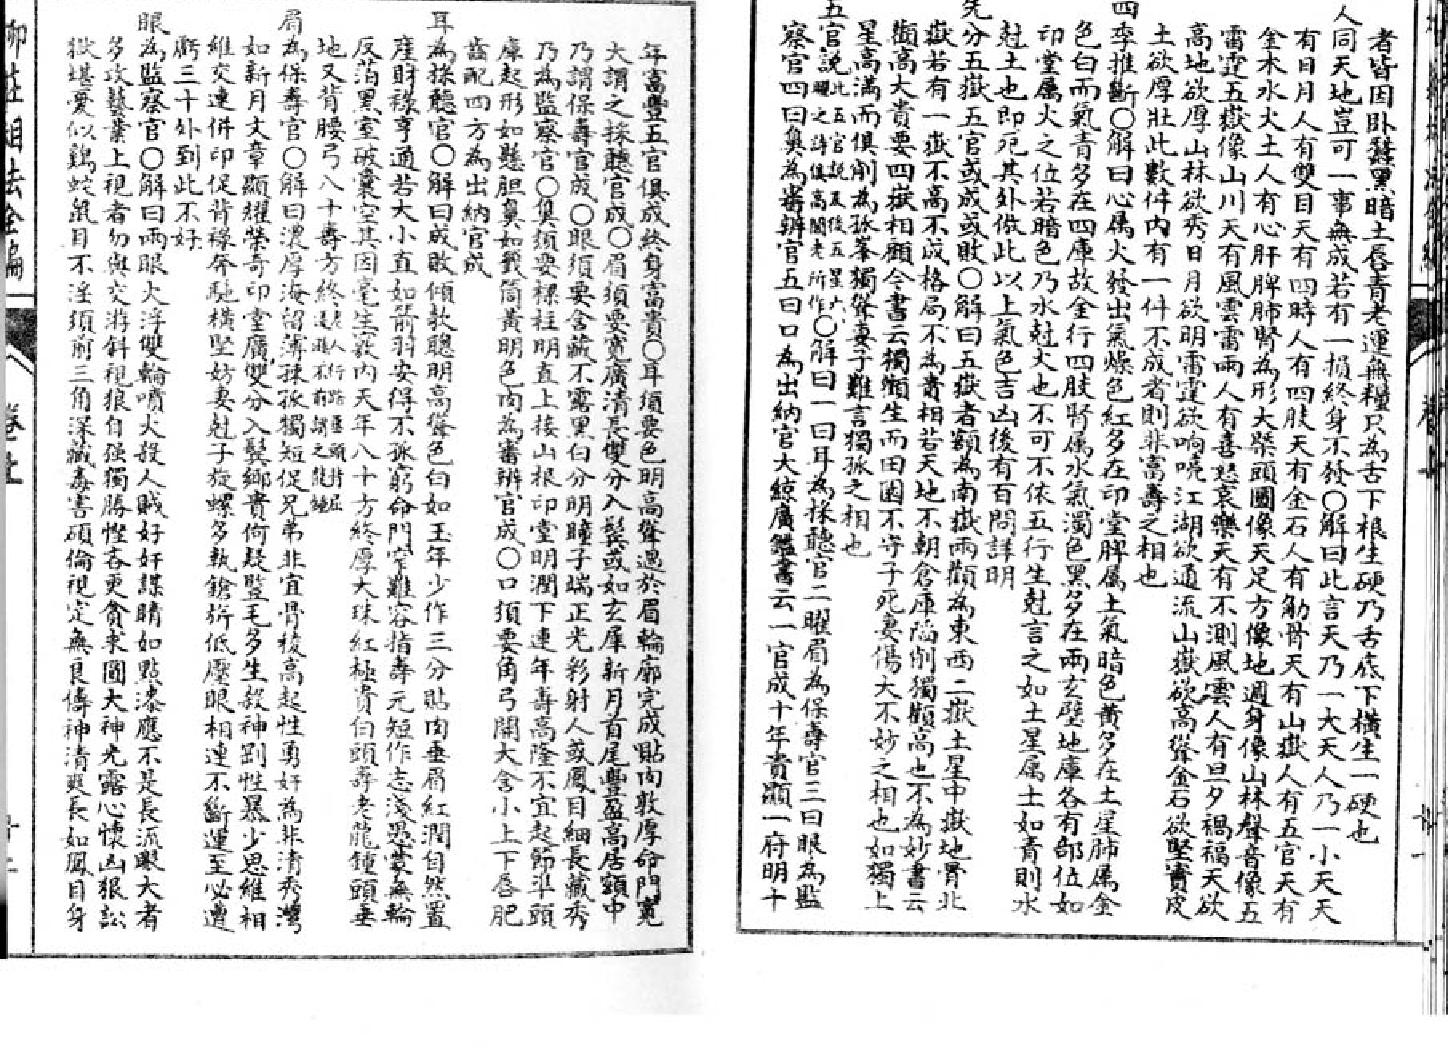 者皆因卧蠶黑暗土唇青老運無糧只為舌下根生硬乃舌底下橫生一硬也
人同天地豈可一事無成若有一損終身不發○解曰此言天乃一大天人乃一小天天
有日月人有雙目天有四時人有四肢天有金石人有觔骨天有山嶽人有五官天有
金木水火土人有心肝脾肺腎為形大槩頭圓像天足方像地週身像山林聲音像五
雷霆五嶽像山川天有風雲雷雨人有喜怒哀樂天有不測風雲人有旦夕禍福天欲
高地欲厚山林欲秀日月欲明雷霆欲响喨江湖欲通流山嶽欲高聳金石欲堅實皮
土欲厚壯此數件內有一件不成者則非富壽之相也
四季推斷○解曰心属火發出氣燥色紅多在印堂脾属土氣暗色黄多在土星肺属金
色白而氣青多在四庫故金行四肢腎属水氣濁色黑多在兩玄壁地庫各有部位如
印堂属火之位若暗色乃水尅火也不可不依五行生尅言之如土星属土如青則水
尅土也即死其外倣此以上氣色吉凶後有百問詳明
先分五嶽五官或成或敗○解曰五嶽者額為南嶽兩顴為東西二嶽土星中嶽地骨北
嶽若有一嶽不高不成格局不為貴相若天地不朝倉庫陷削獨顴高也不為妙書云
顴高大貴要四嶽相顧今書云獨顴生而田園不守子死妻傷大不妙之相也如獨上
星高滿而俱削為孤峯獨聳妻子難言獨孤之相也
五官說此五官說及後五星六曜之詩俱高閣老所作○解曰一曰耳為採聽官二曜眉為保壽官三曰眼為監
察官四曰鼻為審辨官五曰口為出納官大綜廣鑑書云一官成十年貴顯一府明十
年富豐五官俱成終身富貴○耳須要色明高聳過於眉輪廓完成貼肉敦厚命門寬
大謂之採聽官成○眉須要寬廣清長雙分入鬓或如玄犀新月首尾豐盈高居額中
乃謂保壽官成○眼須要含藏不露黑白分明瞳子端正光彩射人或鳳目細長藏秀
乃為監察官○鼻須要樑柱明直上接山根印堂明潤下連年壽高隆不宜起節凖頭
庫起形如懸胆鼻如截筒黃明色肉為審辨官成○口須要角弓開大合小上下唇肥
齒配四方為出納官成
耳為採聽官○解曰成敗傾欹聰明高聳色白如玉年少作三分貼肉垂眉紅潤自然置
產財祿亨通若大小直如箭羽安得不孤窮命門窄難容指壽元短作志淺愚蒙無輪
反薄黑室破囊空其因毫生竅內天年八十方終厚大珠紅極貴白頭壽老龍鍾頭垂
地又背腰弓八十壽方終
眉為保壽官○解曰濃厚海留薄疎孤獨短促兄弟非宜骨稜高起性勇好為非清秀灣
如新月文章顯耀榮奇印堂廣雙分入鬓卿貴何疑豎毛多生殺神剛性暴少思維相
維交連併印促背祿奔馳橫竪妨妻尅子旋螺多執鎗旂低壓眼相連不斷運至必遭
虧三十外到此不好
眼為監察官○解曰兩眼大浮雙輪噴火殺人賊好奸謀睛如點漆應不是長流眼大者
多攻藝業上視者勿與交游斜視狼自强獨勝慳吝更貪求圓大神光露心懷凶狠訟
獄堪憂似鷄蛇鼠目不淫須前三角深藏毒害碩倫視定無良儔神清爽長如鳳目身
柳莊相法全編
卷上